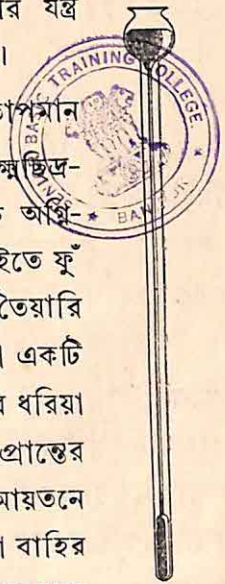 র যন্ত্র
।
তাপমান
সূক্ষ্মছিদ্র-
অগ্নি-
ইতে ফুঁ
তৈয়ারি
। একটি
র ধরিয়া
প্রান্তের
আয়তনে
া বাহির
TRAINING COLLEGE
BASIC